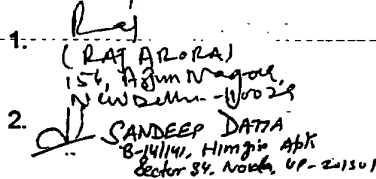 Raj
1.
(RAJ ARORA)
156, Arjun Nagar,
New Delhi-110029
2.
SANDEEP DATTA
B-141/141, Himgiri Apts
Sector 34, Noida, UP-201301